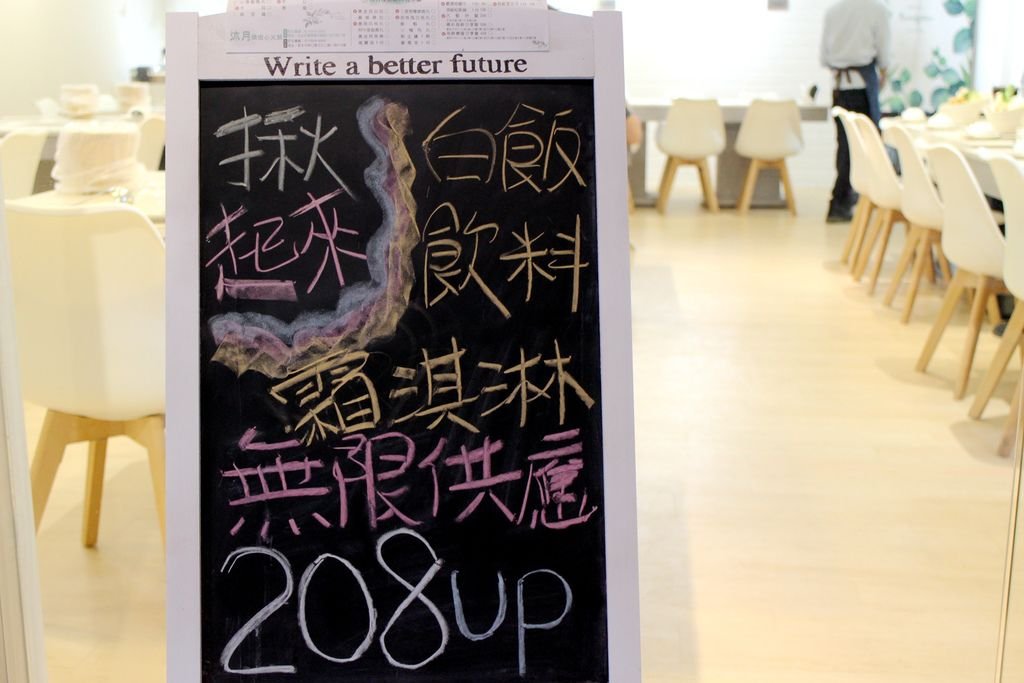 沐月
Write a better future
揪
起來
白飯
飲料
霜淇淋
無限供應
208up